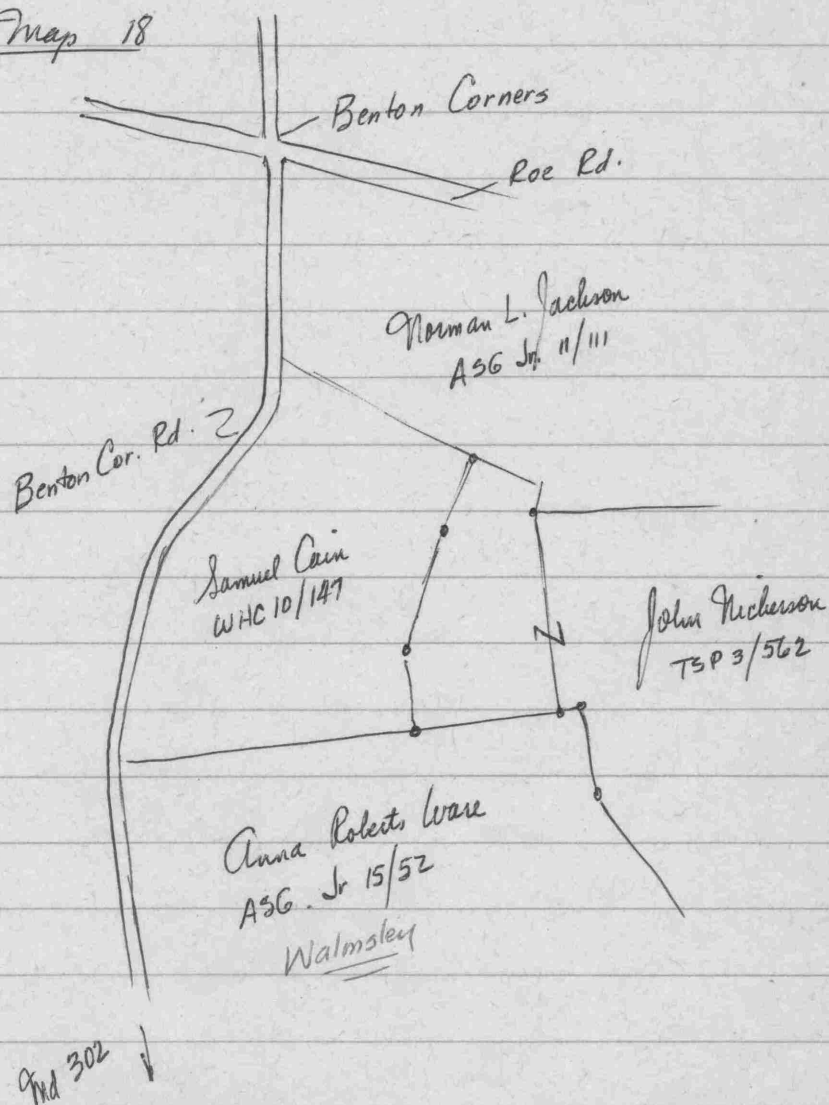 Map 18
Benton Corners
Roe Rd.
Norman L. Jackson
ASG Jr. 11/111
Benton Cor. Rd.
Samuel Cain
WHC 10/147
John Nickerson
TSP 3/562
Z
Anna Roberts Ware
ASG. Jr 15/52
Walmsley
Md 302